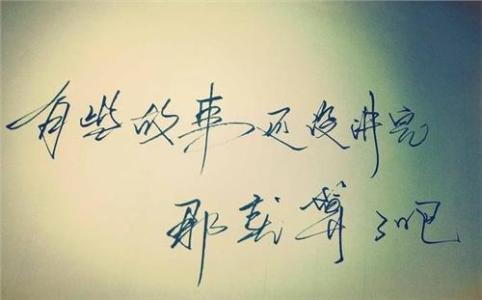 有些故事还没讲完
那就算了吧